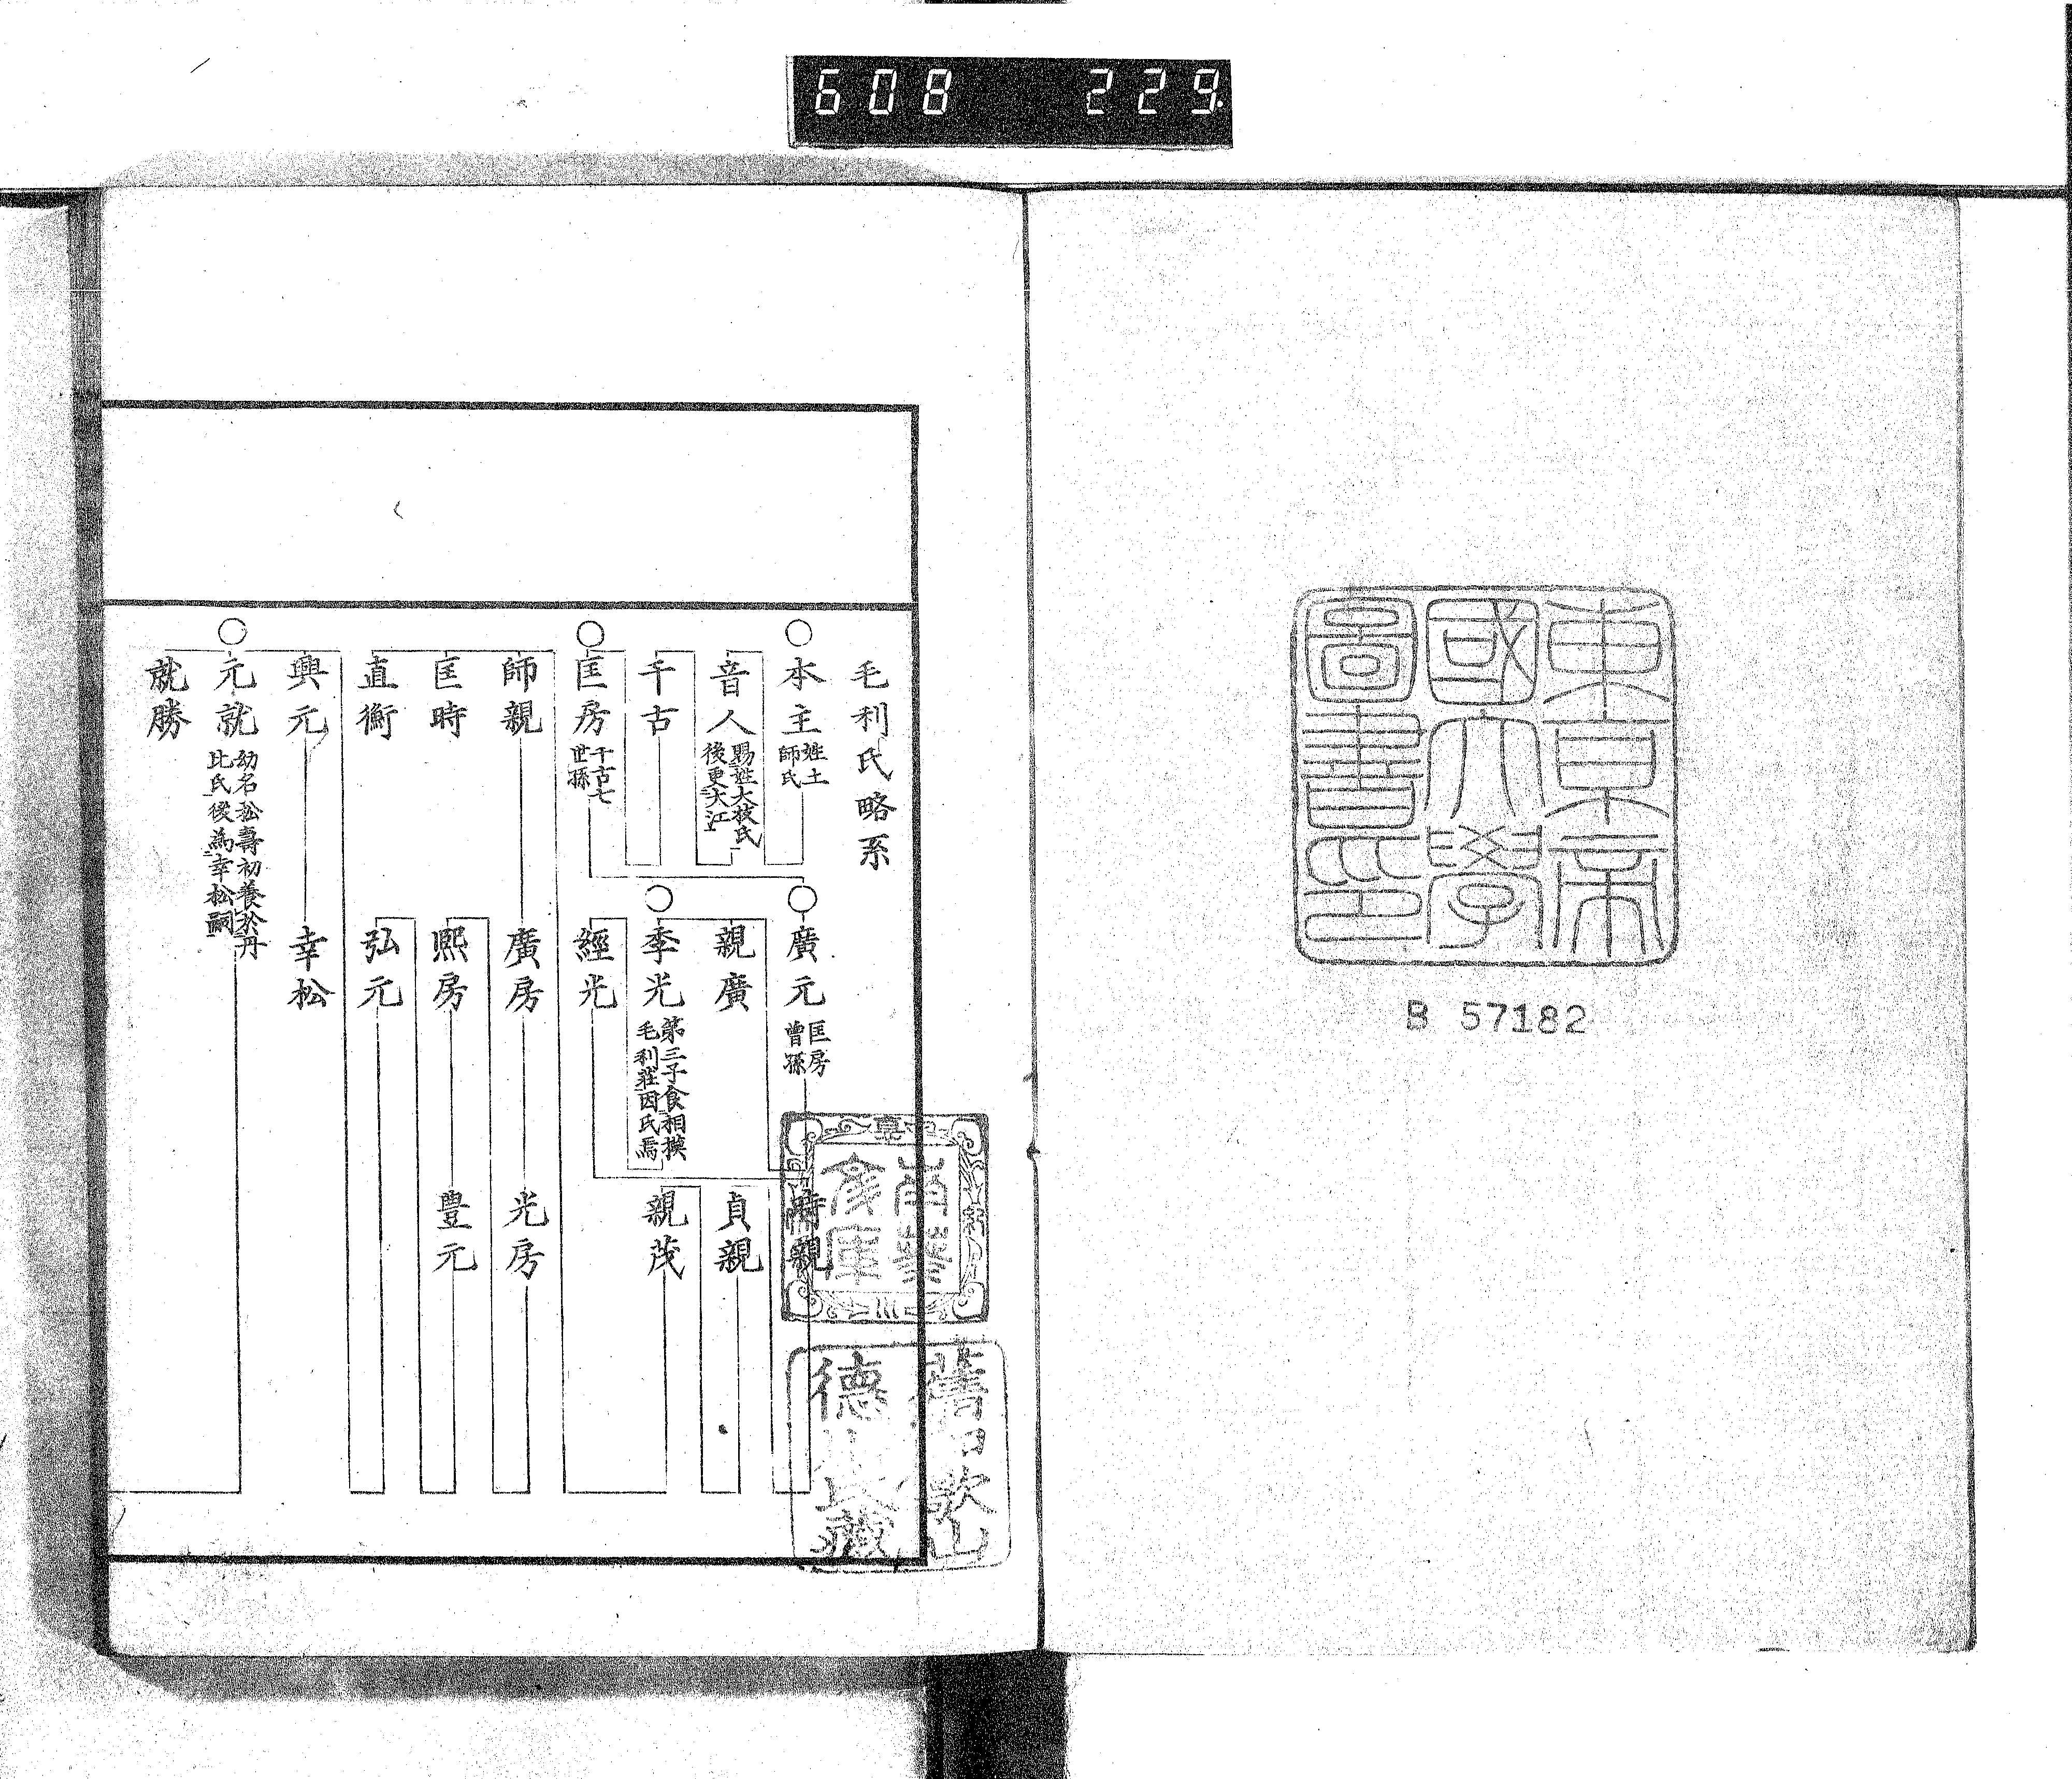 608 229
東京帝
國大學
圖書印
B 57182
毛利氏略系
本主
姓土
師氏
音人
賜姓大枝氏
後更大江
千古
匡房
千古七
世孫
廣元
匡房
曾孫
親廣
季光
第三子食相摸
毛利莊因氏焉
經光
時親
貞親
親茂
師親
廣房
光房
匡時
熙房
豊元
直衡
弘元
興元
幸松
元就
幼名松壽初養於丹
比氏後為幸松嗣
就勝
南葵
文庫
舊和歌山
德川氏藏